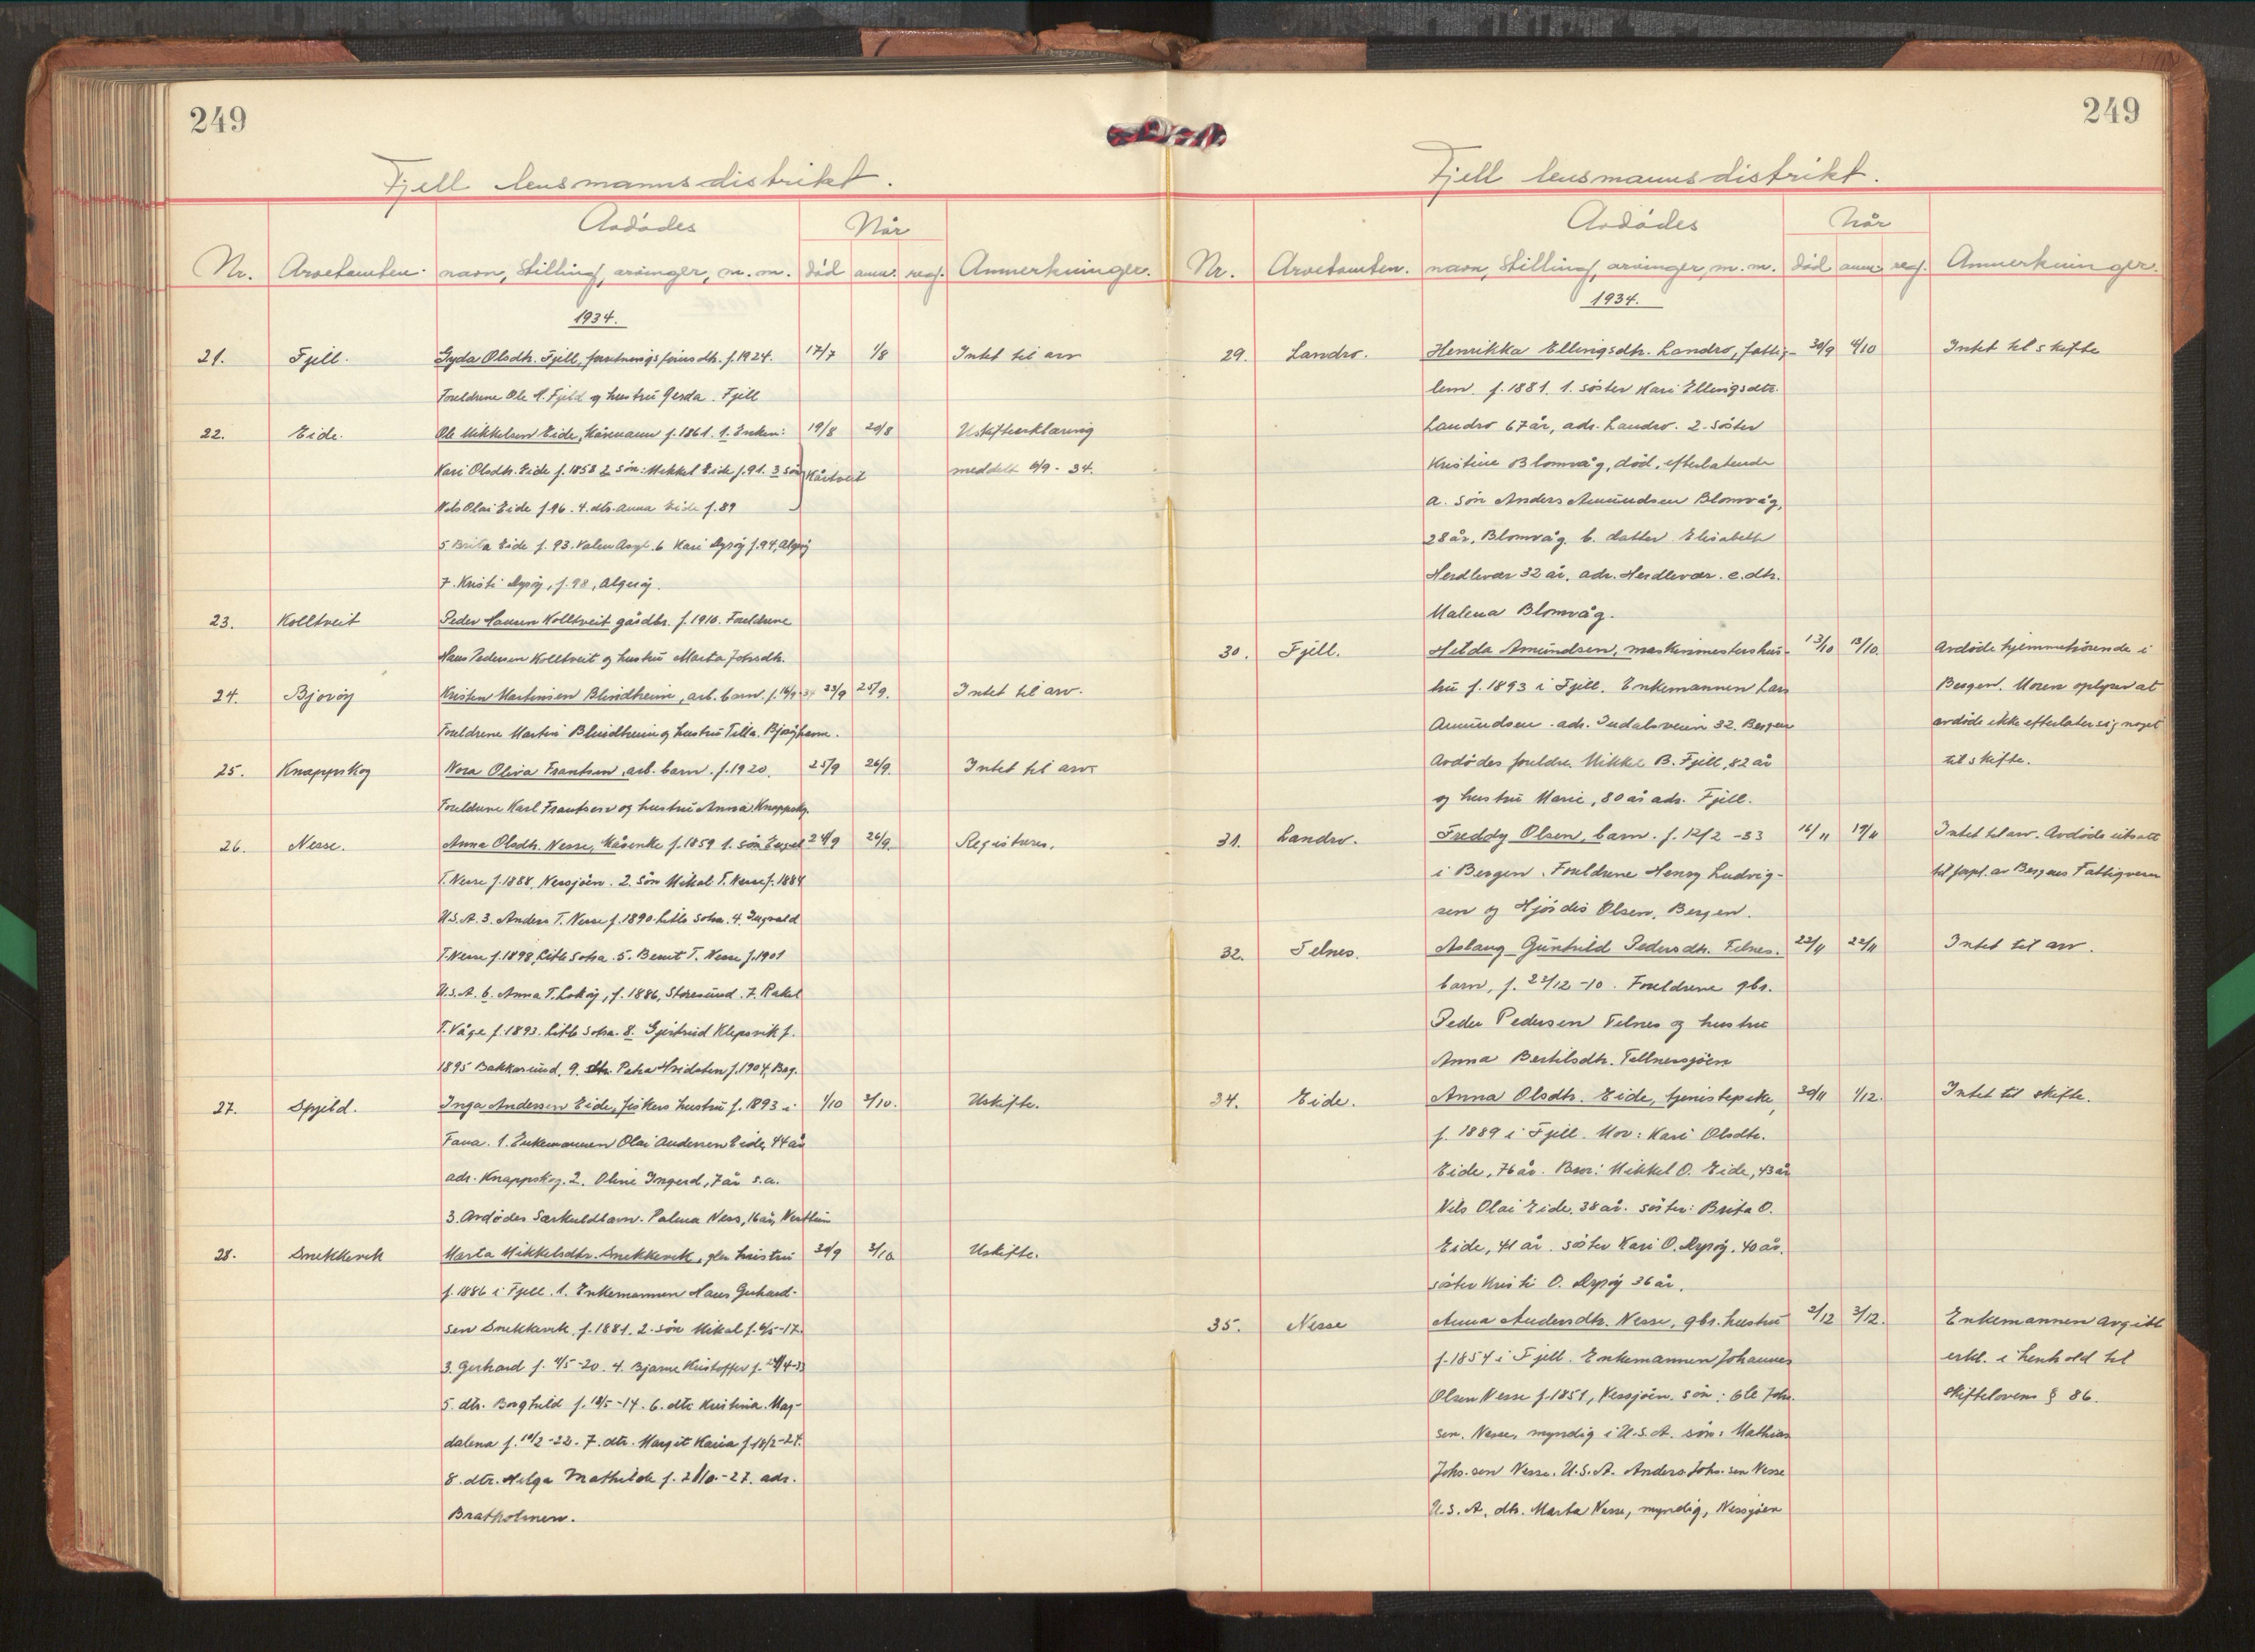 249
Fjell lensmannsdistrikt.
Avdödes
Når
Nr. Arvetomten. navn, stilling, arvinger, m.m. död anm. reg. Anmerkninger.
1934.
21. Fjell. Gyda Olsdtr. Fjell, forretningsförers dtr. f. 1924. 17/7 1/8 Intet til arv
Foreldrene Ole A. Fjeld og hustru Gerda Fjell
22. Eide. Ole Mikkelsen Eide, kårmann f. 1861. 1. Enken: 19/8 20/8 Uskifteerklæring
Kari Olsdtr. Eide f. 1858 2 sön: Mikkel Eide f. 91. 3 sön Kårtveit meddelt 6/9-34.
Nils Olai Eide f. 96. 4. dtr. Anna Eide f. 89
5. Brita Eide f. 93. Valen Asyl. 6 Kari Dysöy f. 94, Algröy
7. Kristi Dyröy, f. 98, Algröy.
23. Kolltveit Peder Hansen Kolltveit gårdbr. f. 1910. Foreldrene
Hans Pedersen Kolltveit og hustru Marta Johsdtr.
24. Bjoröy Kristen Martinsen Blindheim, arb. barn. f. 16/9-34 23/9 25/9. Intet til arv.
Foreldrene Martin Blindheim og hustru Tilla. Bjoröyhamn.
25. Knappskog Nora Oliva Frantsen, arb. barn. f. 1920. 25/9 26/9. Intet til arv
Foreldrene Karl Frantsen og hustru Anna Knappskg.
26. Nesse. Anna Olsdtr. Nesse, kårenke f. 1859 1. sön Engel 24/9 26/9. Registreres.
T. Nesse f. 1888. Nessjöen. 2. Sön Mikal T. Nesse f. 1884
U.S.A. 3. Anders T. Nesse f. 1890. Litle Sotra. 4. Ingvald
T. Nesse f. 1898, Litle Sotra. 5. Bernt T. Nesse f. 1901
U.S.A. 6. Anna T. Loköy, f. 1886, Storesund. 7. Rakel
T. Våge f. 1893. Litle Sotra. 8. Gjertrud Klepsvik f.
1895 Bakkasund. 9. dtr. Petra Hvidsten f. 1904, Beg.
27. Spjeld. Inga Andersen Eide, fiskers hustru f. 1893 i 1/10 2/10. Uskifte.
Fana. 1. Enkemannen Olai Andersen Eide, 44 år
adr. Knappskog. 2. Oline Ingerd, 7 år s.a.
3. Avdödes Særkuldbarn. Palma Ness, 16 år, Vestheim
28. Snekkevik Marta Mikkelsdtr. Snekkevik, gbr. hustru 30/9 3/10 Uskifte.
f. 1886 i Fjell. 1. Enkemannen Hans Gerhard-
sen Snekkevik f. 1881. 2. sön Mikal f. 6/5-17.
3. Gerhard f. 4/5-20. 4. Bjarne Kristoffer f. 24/4-33
5. dtr. Borghild f. 18/5-14. 6. dtr Kristina Mag-
dalena f. 10/2-22. 7. dtr. Margit Karia f. 18/2-24.
8. dtr. Helga Mathilde f. 21/10-27. adr.
Bratholmen.
249
Fjell lensmannsdistrikt.
Avdödes
Når
Nr. Arvetomten. navn, stilling, arvinger, m.m. död anm. reg. Anmerkninger.
1934.
29. Landro. Henrikka Ellingsdtr. Landro, fattig- 30/9 4/10 Intet til skifte
lem. f. 1881. 1. söster Kari Ellingsdtr.
Landro 67 år, adr. Landro. 2. Söster
Kristine Blomvåg, död, efterlatende
a. sön Anders Amundsen Blomvåg,
28 år, Blomvåg. b. datter Elisabeth
Herdlevær 32 år. adr. Herdlevær. c. dtr.
Malena Blomvåg.
30. Fjell. Hilda Amundsen, maskinmestershus- 13/10 13/10. Avdöde hjemmehörende i
tru f. 1893 i Fjell. Enkemannen Lars Bergen. Moren oplyser at
Amundsen. adr. Indalsveien 32. Bergen avdöde ikke efterlater sig noget
Avdödes foreldre Mikkel B. Fjell, 82 år til skifte.
og hustru Marie, 80 år adr. Fjell.
31. Landro. Freddy Olsen, barn. f. 12/2-33 16/11 19/11 Intet til arv. Avdöde utsatt
i Bergen. Foreldrene Henry Ludvig- til forpl. av Bergens Fattigvesen
sen og Hjördis Olsen, Bergen.
32. Telnes. Aslaug Gunhild Pedersdtr. Telnes. 22/11 22/11 Intet til arv.
barn, f. 22/12-10. Foreldrene gbr.
Peder Pedersen Telnes og hustru
Anna Bertilsdtr. Tellnessjöen
34. Eide. Anna Olsdtr. Eide, tjenistepike, 30/11 1/12. Intet til skifte.
f. 1889 i Fjell. Mor: Kari Olsdtr.
Eide, 76 år. Bror: Mikkel O. Eide, 43 år
Nils Olai Eide, 38 år. söster: Brita O.
Eide, 41 år. söster Kari O. Dyröy. 40 år.
söster Kristi O. Dyröy 36 år.
35. Nesse Anna Andersdtr. Nesse, gbr. hustru 2/12 3/12. Enkemannen avgitt
f. 1854 i Fjell. Enkemannen Johannes erkl. i henhold til
Olsen Nesse f. 1851, Nessjöen. sön: Ole Joh. skiftelovens § 86.
sen. Nesse, myndig i U.S.A. sön: Mathias
Johs.sen Nesse. U.S.A. Anders Johs.sen Nesse
U.S.A. dtr. Marta Nesse, myndig, Nessjöen